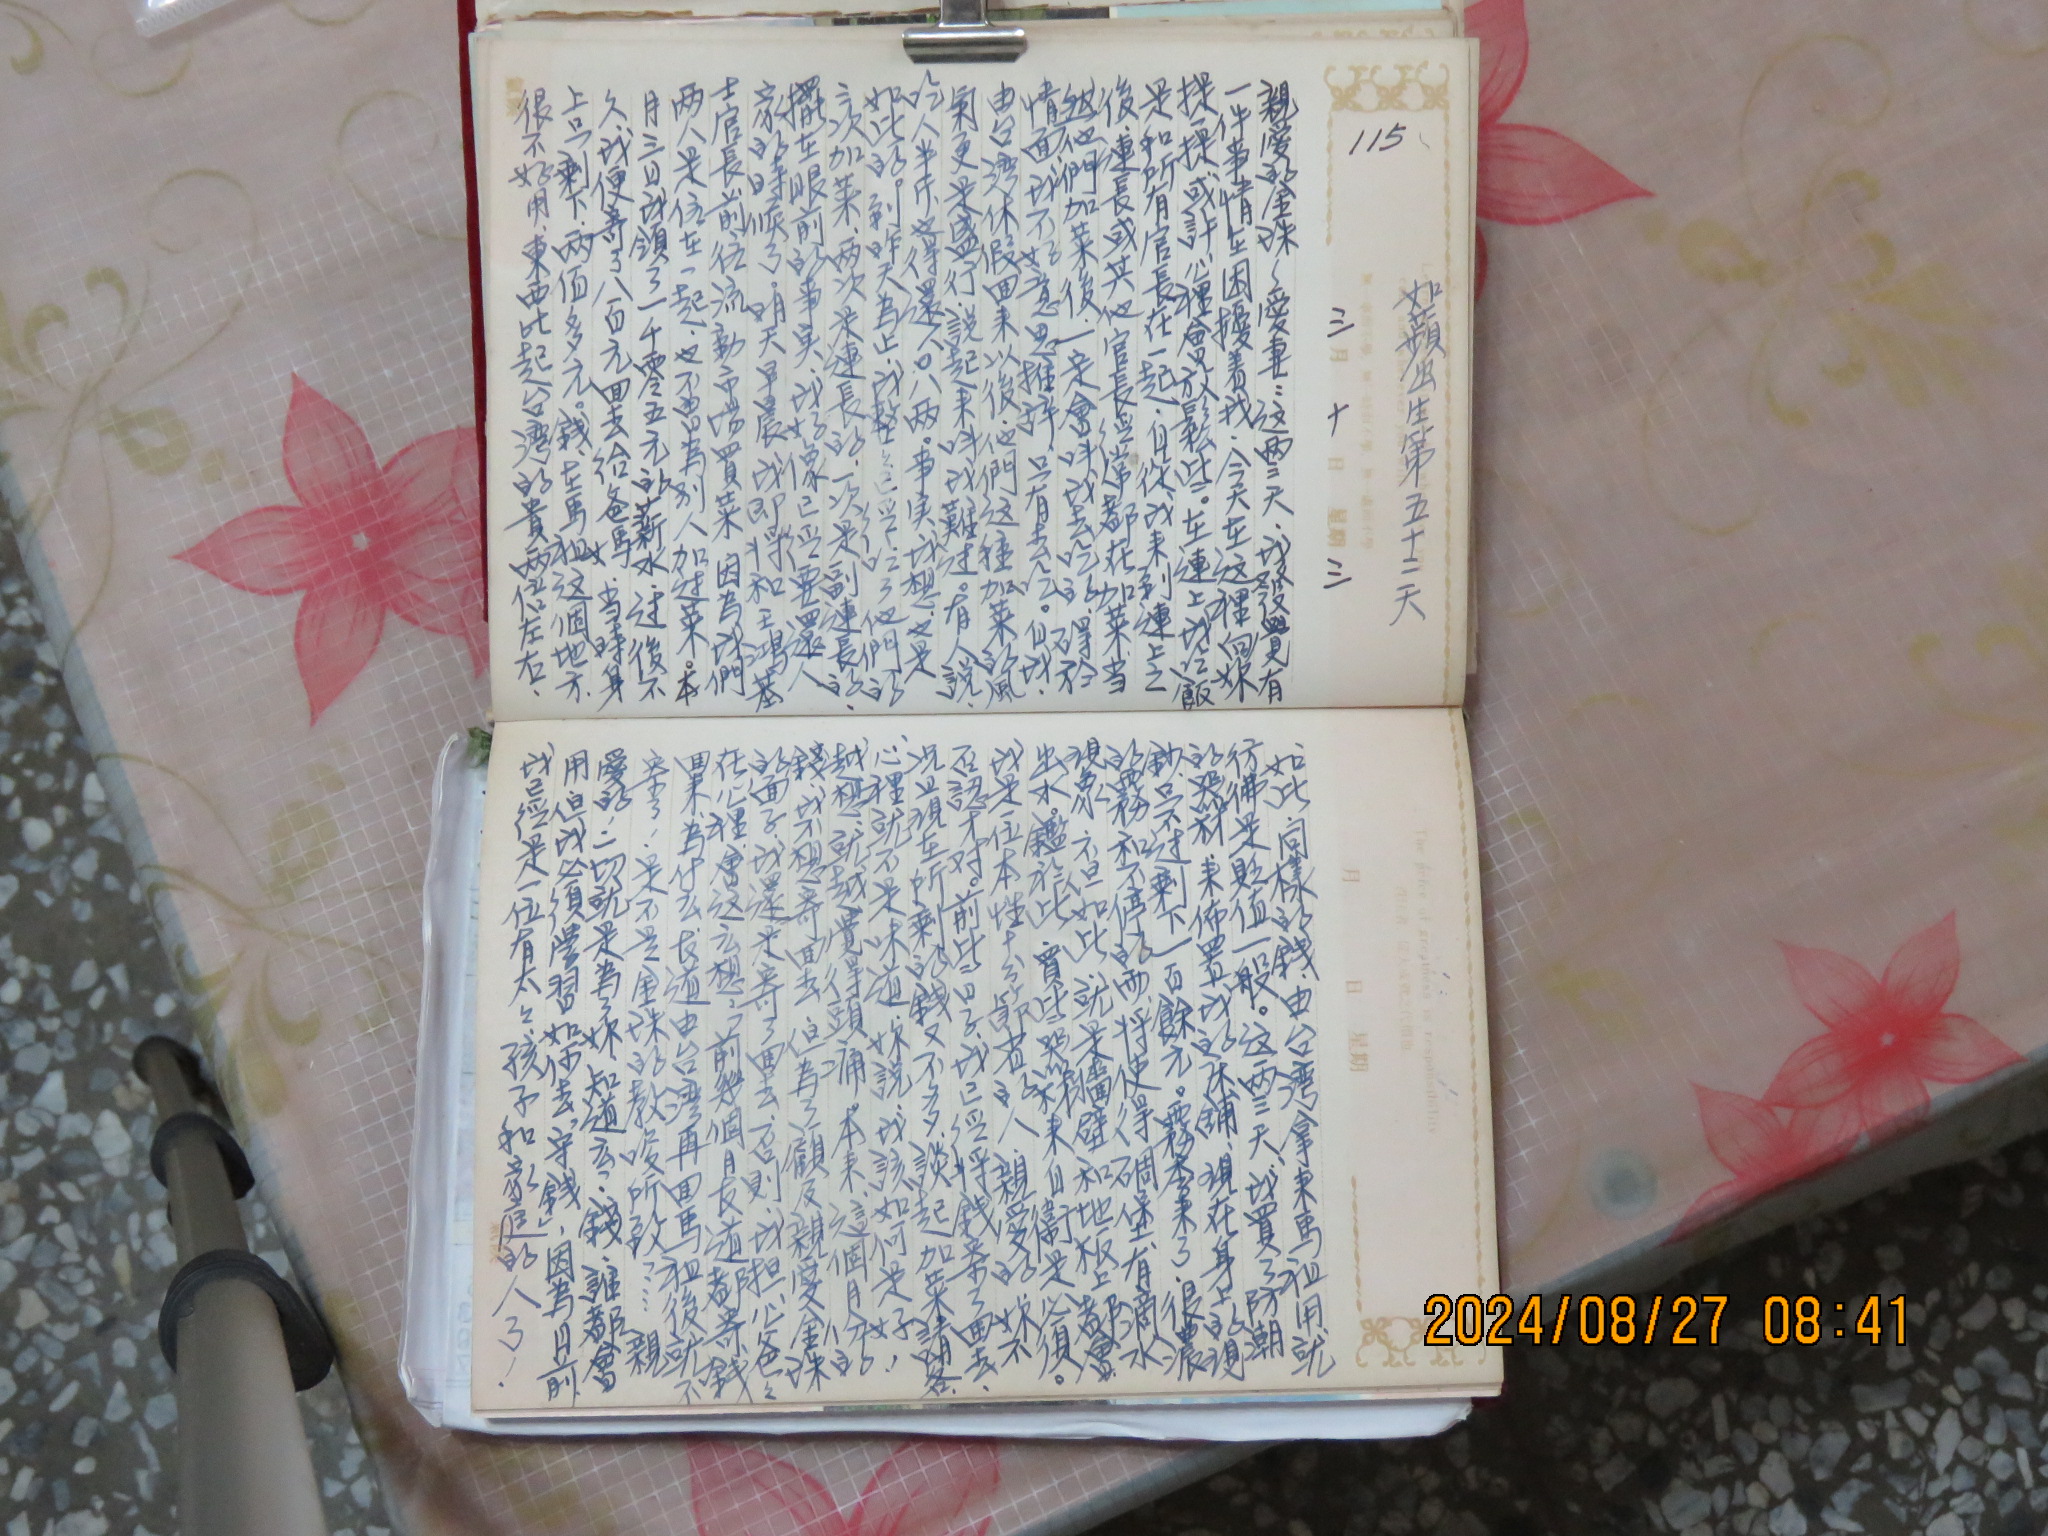 115
如蘋出生第五十二天
三月十日 星期三
親愛的金珠～愛妻：這兩三天、我發覺有
一件事情在困擾着我、今天在这裡向妳
提一提或許心裡會放鬆些。在連上我吃飯
是和所有官長在一起、自從我来到連上之
後、連長或其他官長經常都在加菜、当
然他們加菜後、一定會叫我去吃的、碍於
情面、我不好意思推辞、只有去吃。但我、
由台湾休假回来以後、他們这種加菜的風
氣更是盛行、說起来叫我難过。有人説、
吃人半斤、也得還人八兩。事実我想也是
如此的。到昨天為止、我整整已經吃了他們的
三次加菜、两次是連長的、一次是副連長的、
擺在眼前的事実、我好像已經要還人
家的時候了、明天早晨我即将和王鴻基
士官長前往流動市場買菜、因為我們
两人是住在一起、也不曾為別人加过菜。本
月三日我領了一千零五元的薪水、过後不
久、我便寄了八百元回去給爸媽、当時身
上只剩下两佰多元。錢、在馬祖这個地方
很不好用、東西比起台灣的貴兩倍左右、
如此同樣的錢、由台湾拿来馬祖用就
彷彿是貶值一般。这两三天、我買了防潮
的器材、来佈置我的床鋪、現在身上的現
鈔只不过剩下一百餘元。霧季来了、很濃
的霧和不停的雨、将使得碉堡有滴水
現象、不但如此、就是牆壁和地板上都會
出水。鑑於此、買些器材来自衛是必須。
我是一位本性十分節省的人、親愛的妳不
否認才对。前些日子、我已經将錢寄了回去、
况且現在所剩的錢又不多、談起加菜請客、
心裡就不是味道、妳説、我該如何是好！
越想、就越覺得頭痛。本来、這個月份的
錢、我不想寄回去、但為了顧及親愛金珠
的面子、我還是寄了回去、否則、我担心爸爸
在心裡會这么想：「前幾個月長道都寄錢
回来、為什么長道由台湾再回馬祖後就不
寄了！是不是金珠的教唆所致……」親
愛的！一切就是為了妳、知道么、錢、誰都會
用、但我必須學習如何去「守錢」、因為目前
我已經是一位有太太、孩子和家庭的人了！
2024/08/27 08:41